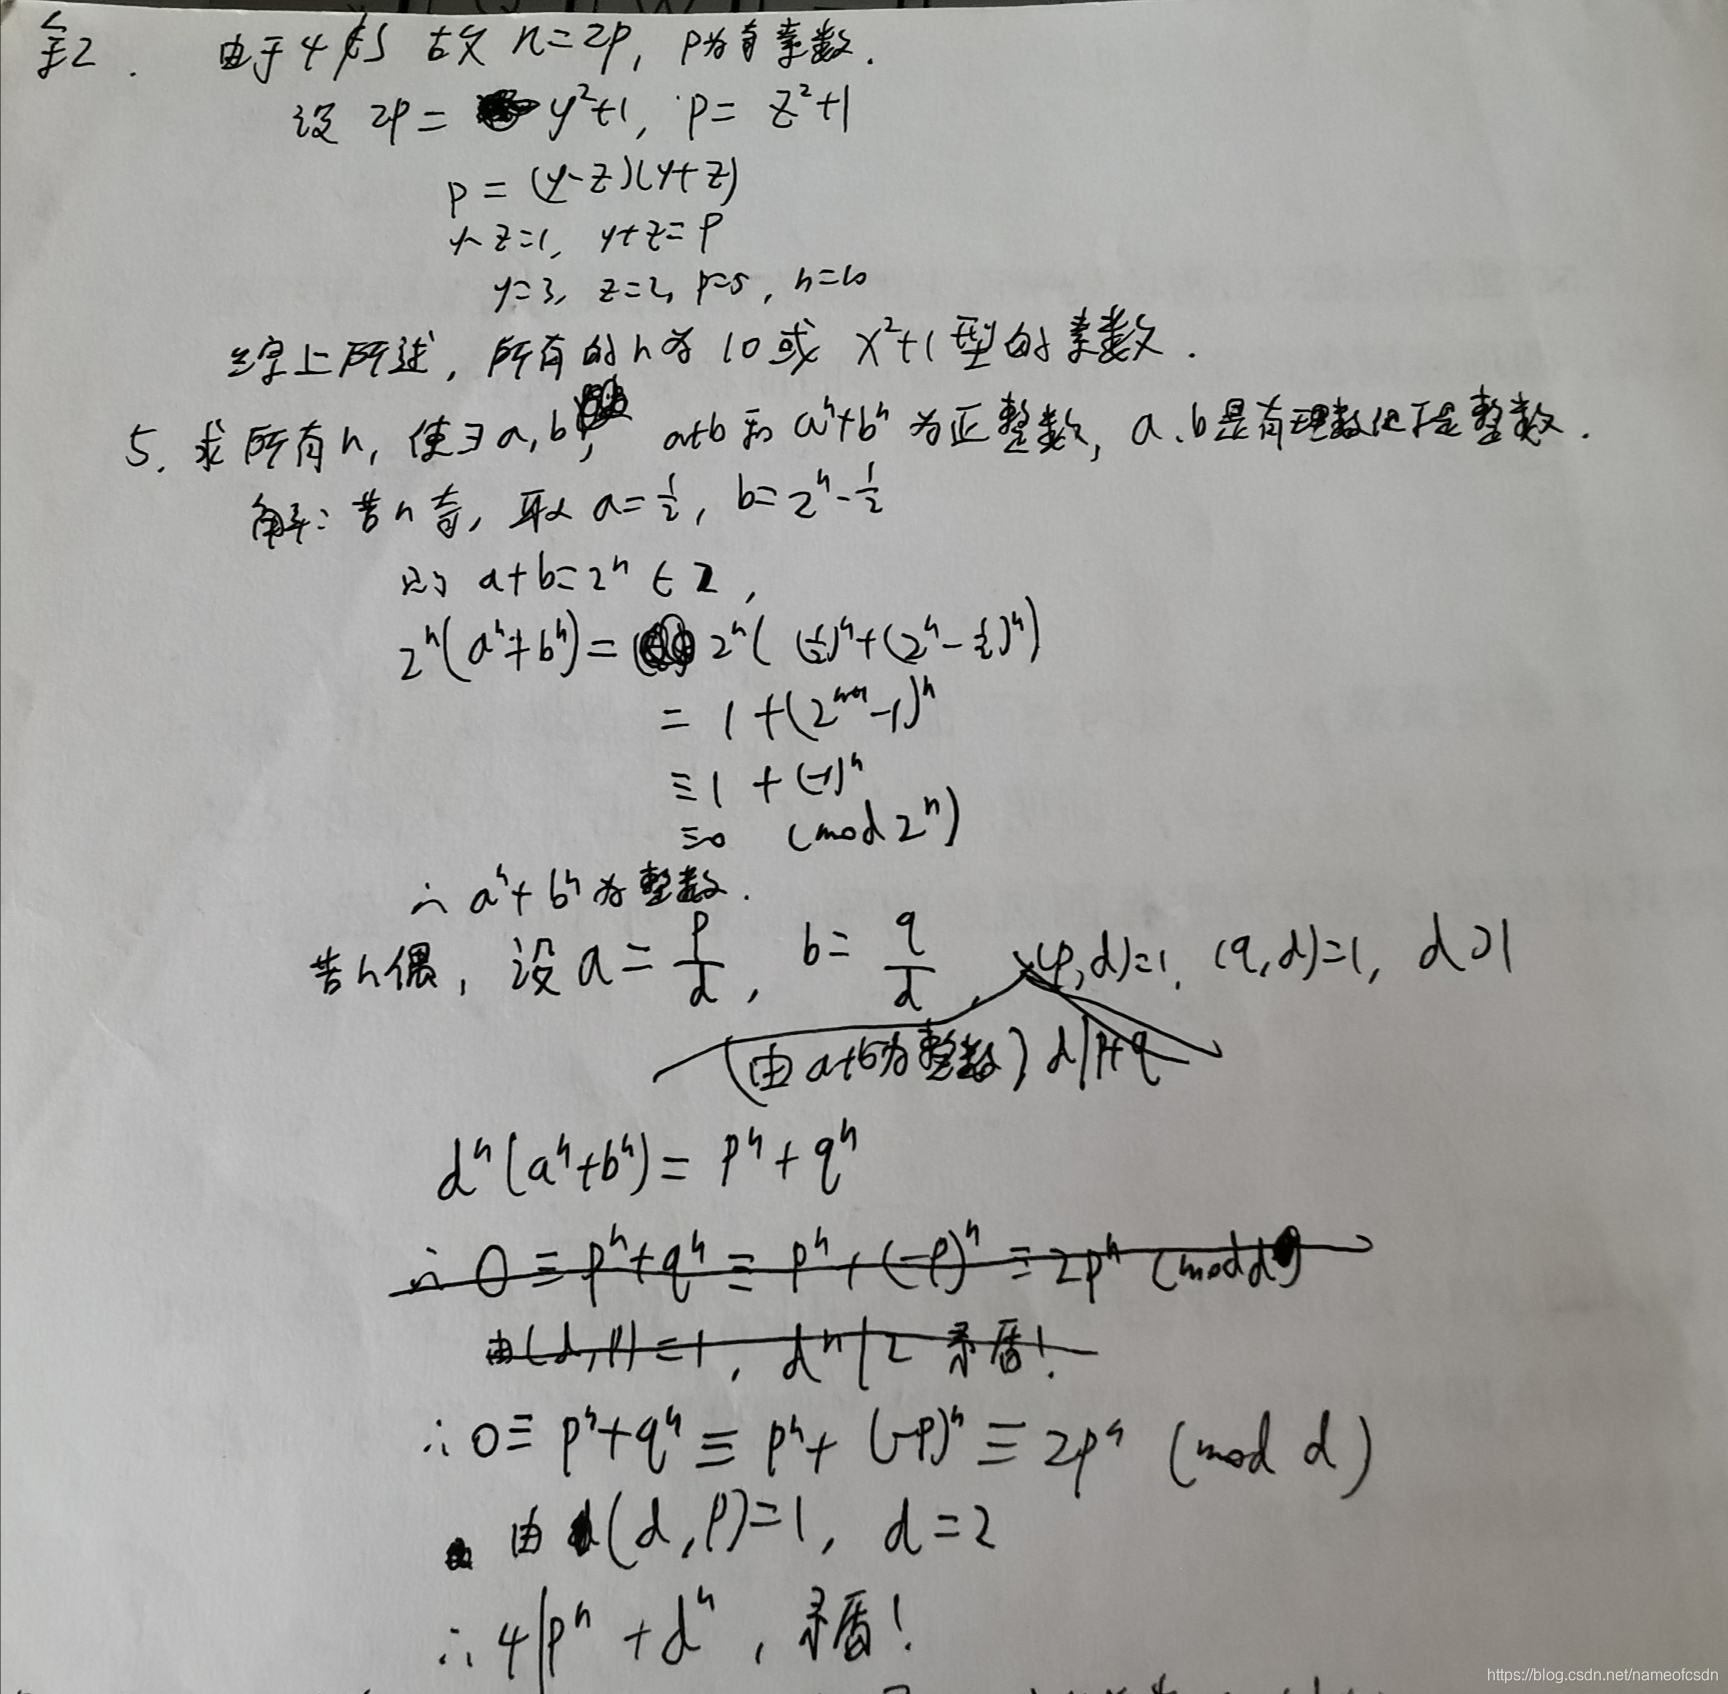 由于4∉S 故 n=2p, p为奇素数.
设 2p= y²+1, p= z²+1
p = (y-z)(y+z)
y-z=1, y+z=p
y=3, z=2, p=5, n=10
综上所述, 所有的n为 10或 x²+1型的素数.
5. 求所有n, 使∃a,b, a+b和 aⁿ+bⁿ 为正整数, a、b是有理数但不是整数.
解: 若n奇, 取 a=1/2, b=2ⁿ-1/2
则 a+b=2ⁿ∈Z,
2ⁿ(aⁿ+bⁿ)= 2ⁿ( (1/2)ⁿ+(2ⁿ-1/2)ⁿ)
= 1+(2ⁿ⁺¹-1)ⁿ
≡1 +(-1)ⁿ
≡0 (mod 2ⁿ)
∴ aⁿ+bⁿ为整数.
若n偶, 设 a= p/d, b= q/d, (p,d)=1, (q,d)=1, d>1
(由a+b为整数) d|p+q
dⁿ(aⁿ+bⁿ)= pⁿ+qⁿ
∴ 0≡pⁿ+qⁿ≡ pⁿ+(-p)ⁿ≡2pⁿ (mod d)
由(d,p)=1, dⁿ|2 矛盾!
∴ 0≡ pⁿ+qⁿ≡ pⁿ+(-p)ⁿ≡2pⁿ (mod d)
由(d,p)=1, d=2
∴ 4|pⁿ+dⁿ, 矛盾!
https://blog.csdn.net/nameofcsdn